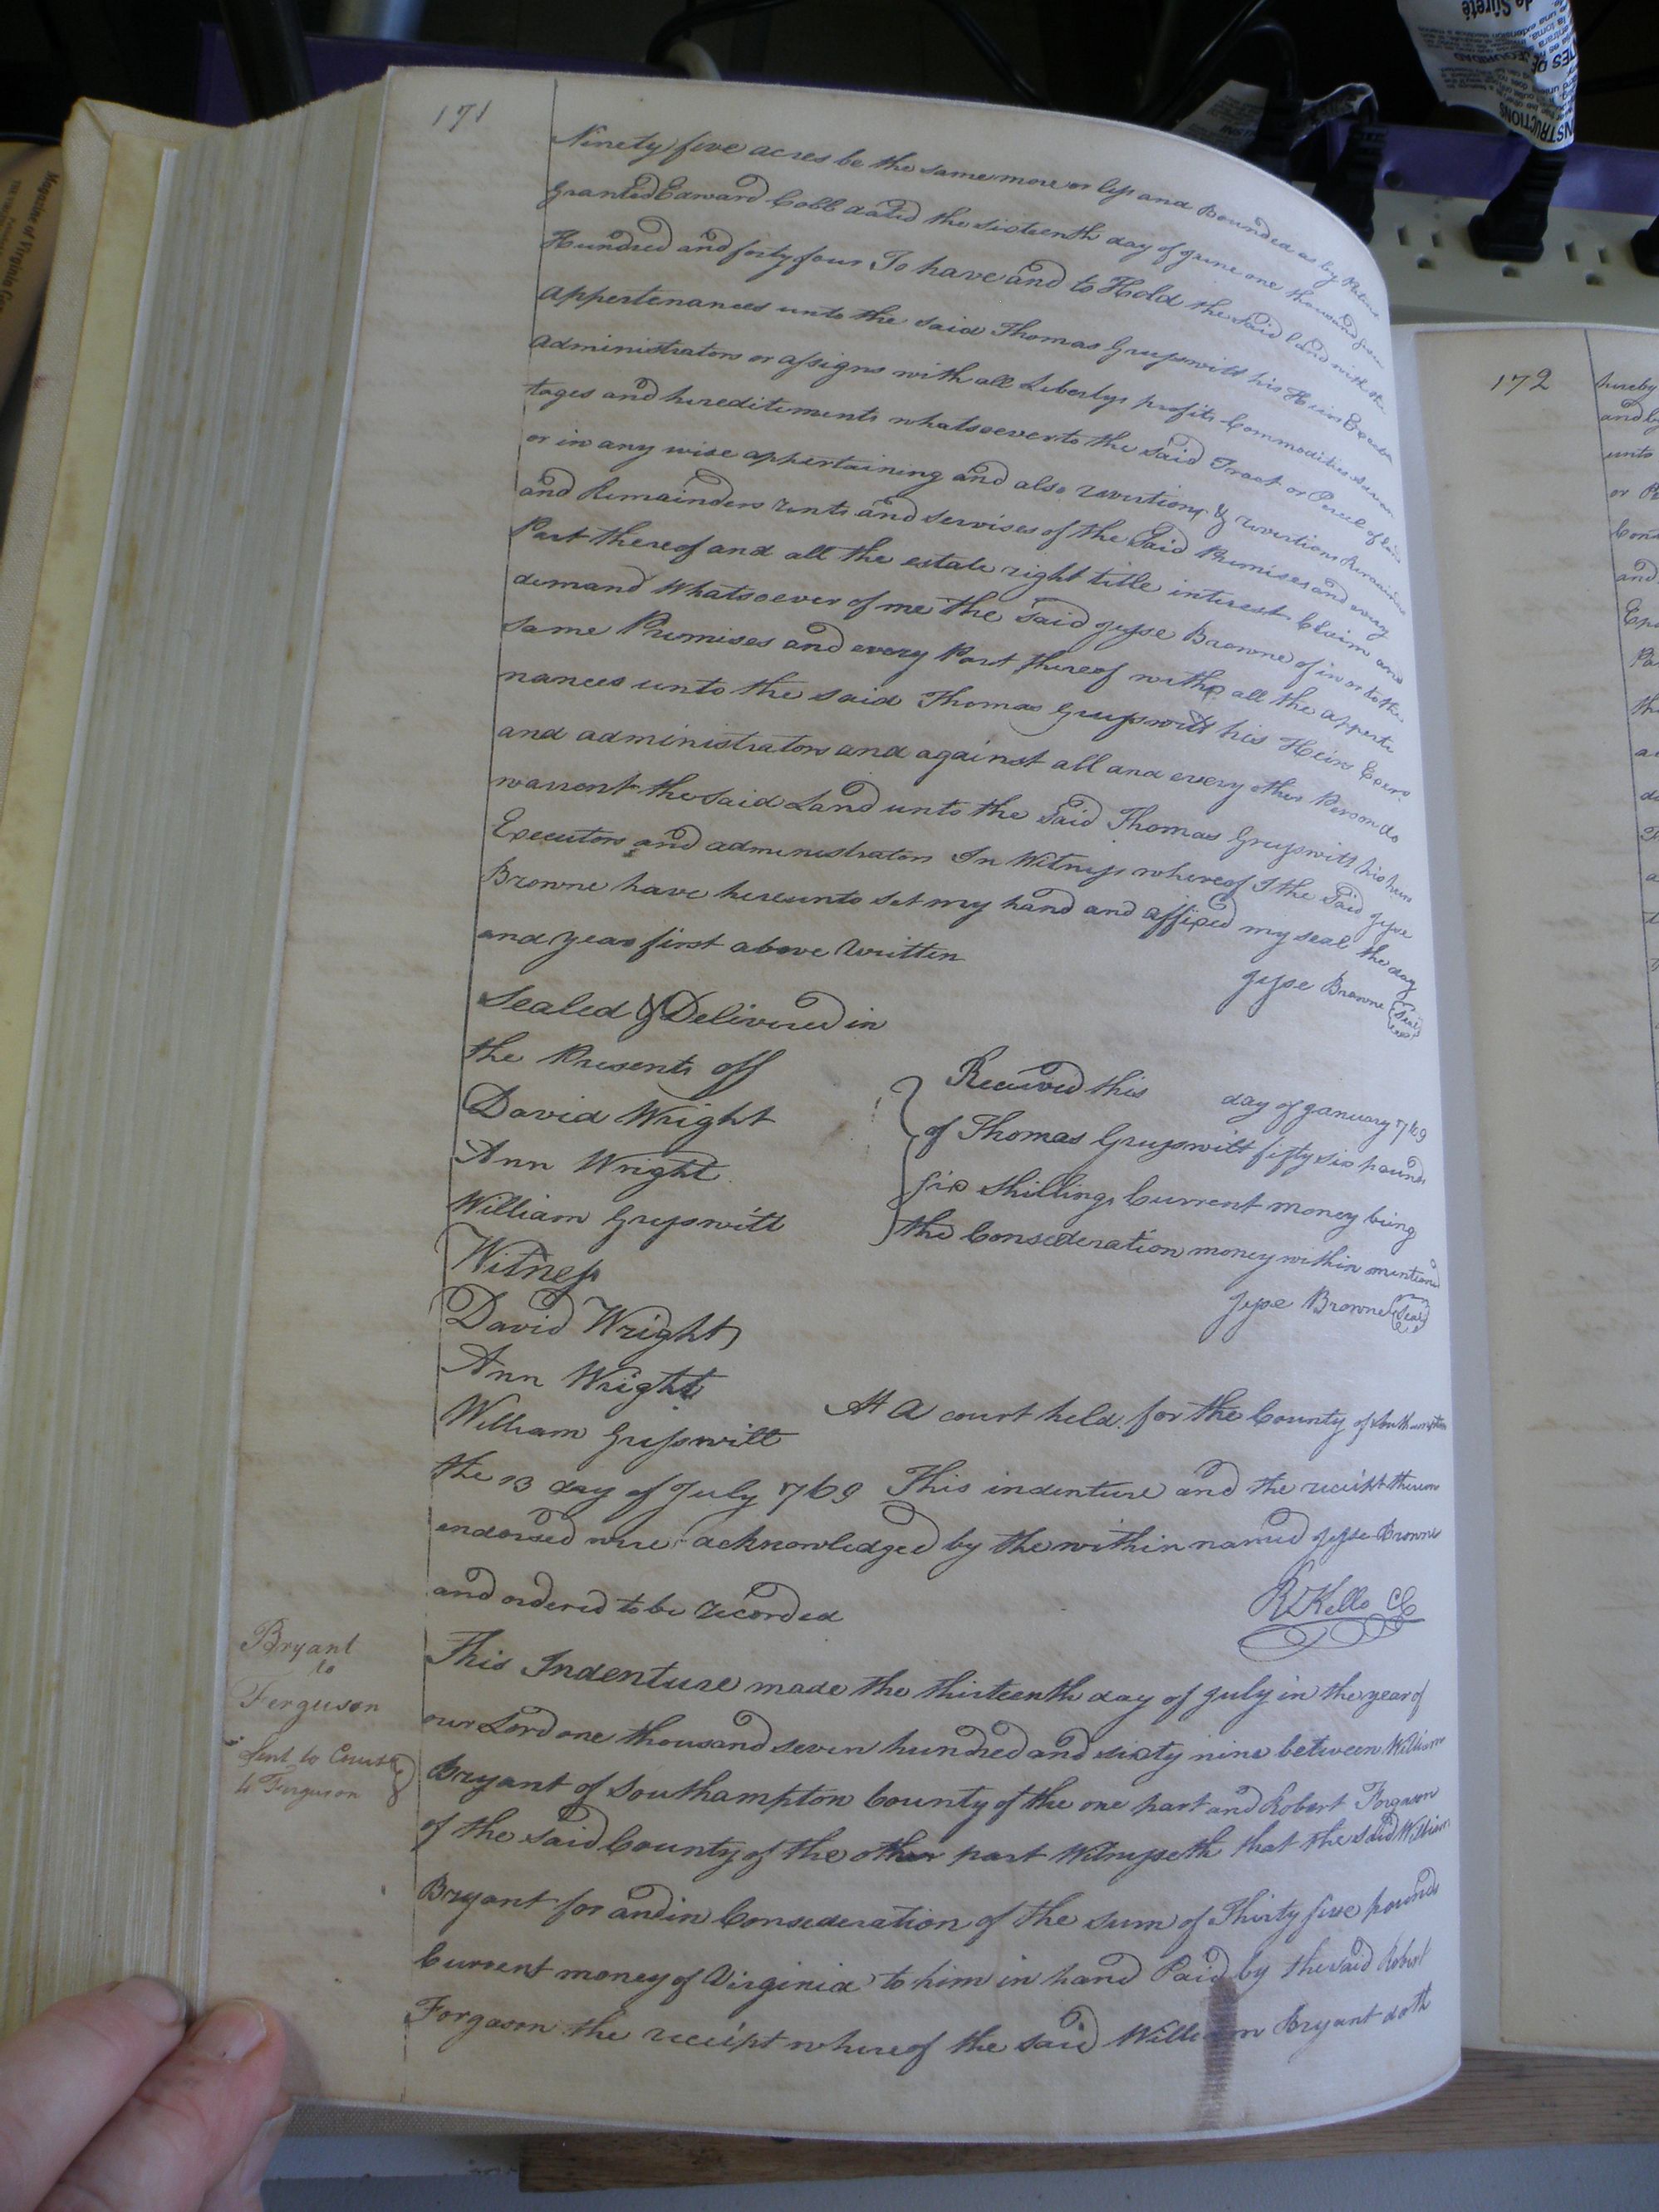 171
Ninety five acres be the same more or less and Bounded as by Patent
granted Edward Cobb dated the sixteenth day of June one thousand seven
Hundred and forty four To have and to Hold the said land with the
appertenances unto the said Thomas Gresswitt his Heirs
administrators or assigns with all Libertys profits Commodities
tages and hereditements whatsoever to the said Tract or Parcel of
or in any wise appertaining and also revertion & revertions Remainder
and Remainders rents and servises of the said Premises and every
Part thereof and all the estate right title interest Claim and
demand Whatsoever of me the said Jesse Browne of in or to the
same Premises and every Part thereof with all the apperte
nances unto the said Thomas Gresswitt his Heirs Exers
and administrators and against all and every other Person do
warrent the said Land unto the said Thomas Gresswitt his heirs
Executors and administrators In Witness whereof I the said Jesse
Browne have hereunto set my hand and affixed my seal the day
and year first above Written
Jesse Browne (Seal)
Sealed & Delivered in
the Presents off
David Wright
Ann Wright
William Gresswitt
Received this day of January 1769
of Thomas Gresswitt fifty six pounds
six shillings Current money being
the Consederation money within mentiond
Jesse Browne (Seal)
Witness
David Wright
Ann Wright
William Gresswitt
At a court held for the County of Southampton
the 13 day of July 1769 This indenture and the receipt thereon
endorsed were acknowledged by the within named Jesse Browne
and ordered to be recorded
R Kello CC
Bryant
to
Ferguson
Sent to Courts
to Ferguson
This Indenture made the thirteenth day of July in the year of
our Lord one thousand seven hundred and sixty nine between William
Bryant of Southampton County of the one part and Robert Forgason
of the said County of the other part Witnesseth that the said William
Bryant for and in Consederation of the sum of Thirty five pounds
Current money of Virginia to him in hand Paid by the said Robert
Forgason the receipt whereof the said William Bryant doth
172
hereby
and by
unto
or
and
Magazine of Virginia
INSTRUCTIONS
de Sûreté